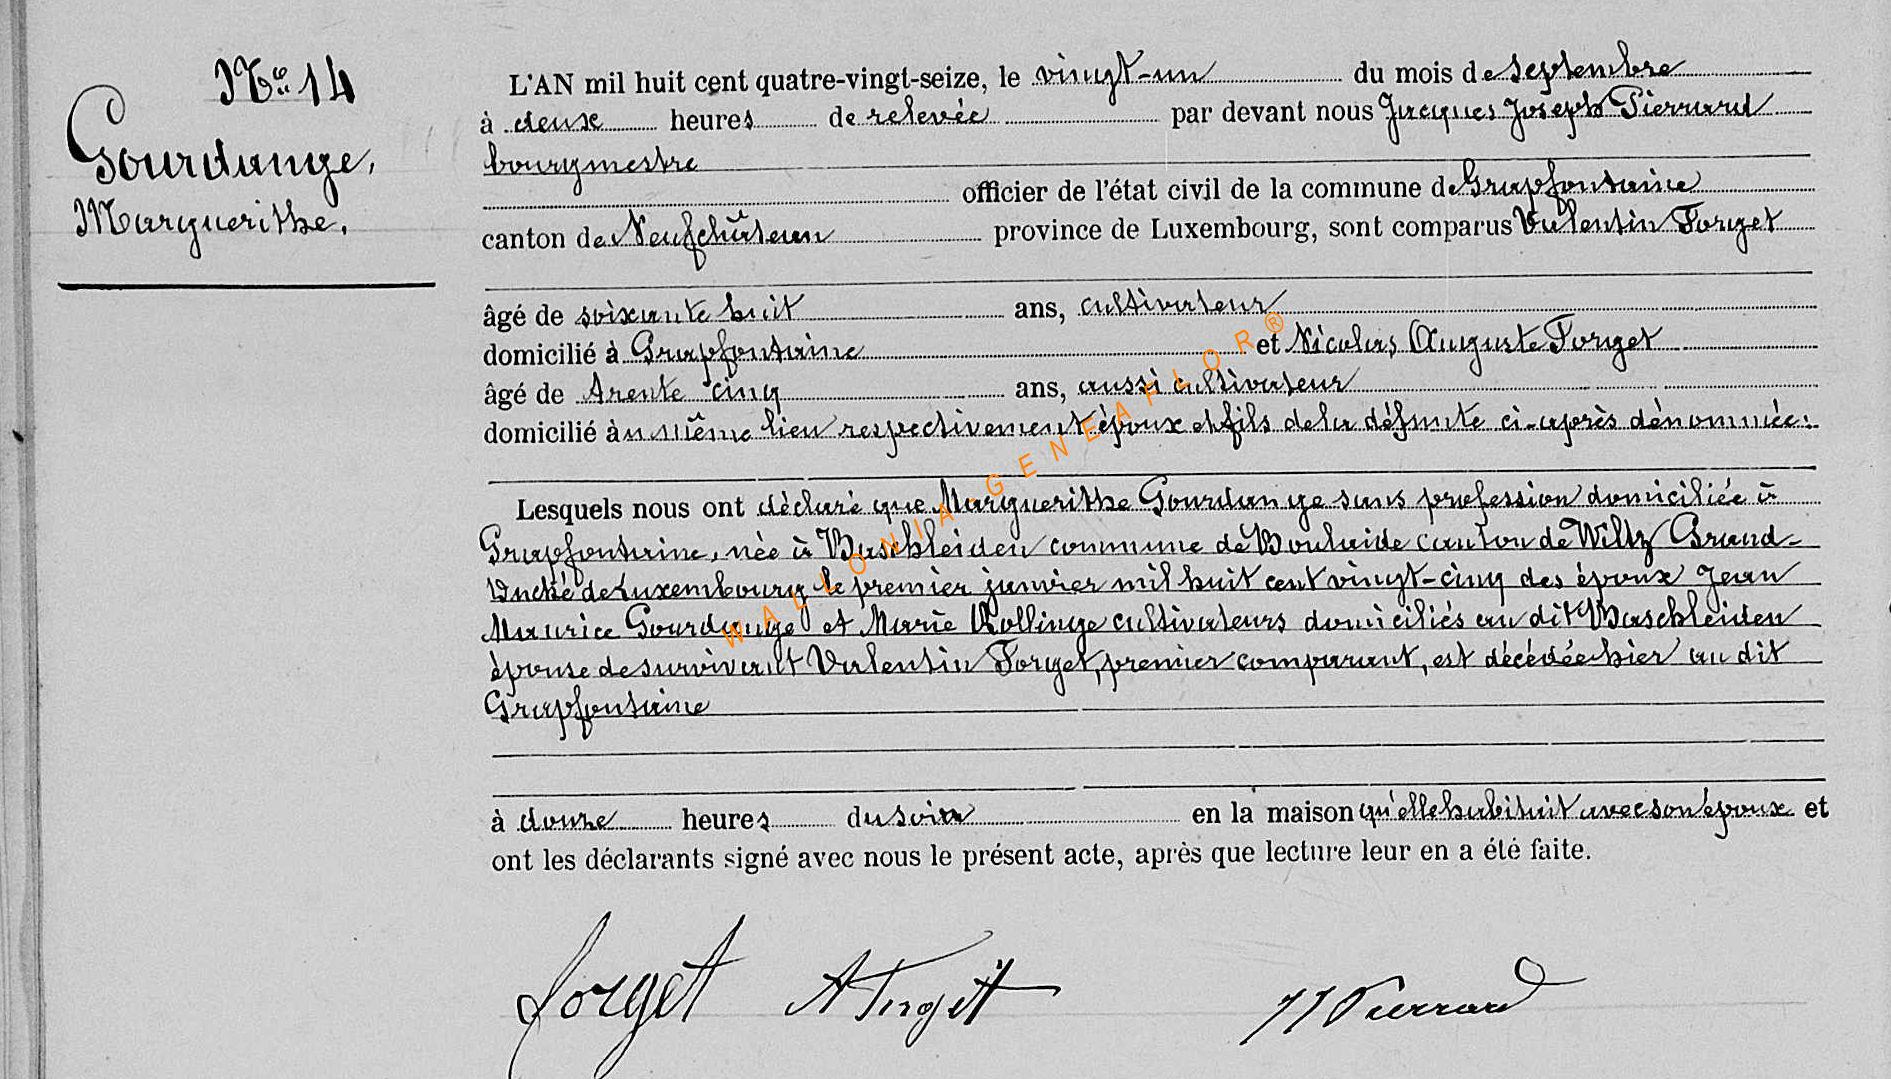 No 14
Gourdange,
Marguerithe.
L'AN mil huit cent quatre-vingt-seize, le vingt-un du mois de septembre
à deux heures de relevée par devant nous Jacques Joseph Pierrard
bourgmestre
officier de l'état civil de la commune de Grapfontaine
canton de Neufchâteau province de Luxembourg, sont comparus Valentin Forget
âgé de soixante huit ans, cultivateur
domicilié à Grapfontaine et Nicolas Auguste Forget
âgé de trente cinq ans, aussi cultivateur
domicilié au même lieu respectivement époux et fils de la défunte ci-après dénommée:
Lesquels nous ont déclaré que Marguerithe Gourdange sans profession domiciliée à
Grapfontaine, née à Baschleiden commune de Boulaide canton de Wiltz Grand-
Duché de Luxembourg le premier janvier mil huit cent vingt-cinq des époux Jean
Maurice Gourdange et Marie Rollinge cultivateurs domiciliés au dit Baschleiden
épouse de survivant Valentin Forget, premier comparant, est décédée hier au dit
Grapfontaine
à douze heures du soir en la maison qu'elle habitait avec son époux et
ont les déclarants signé avec nous le présent acte, après que lecture leur en a été faite.
Forget A Forget JJ Pierrard
WALLONIA-GENEAFLOR®